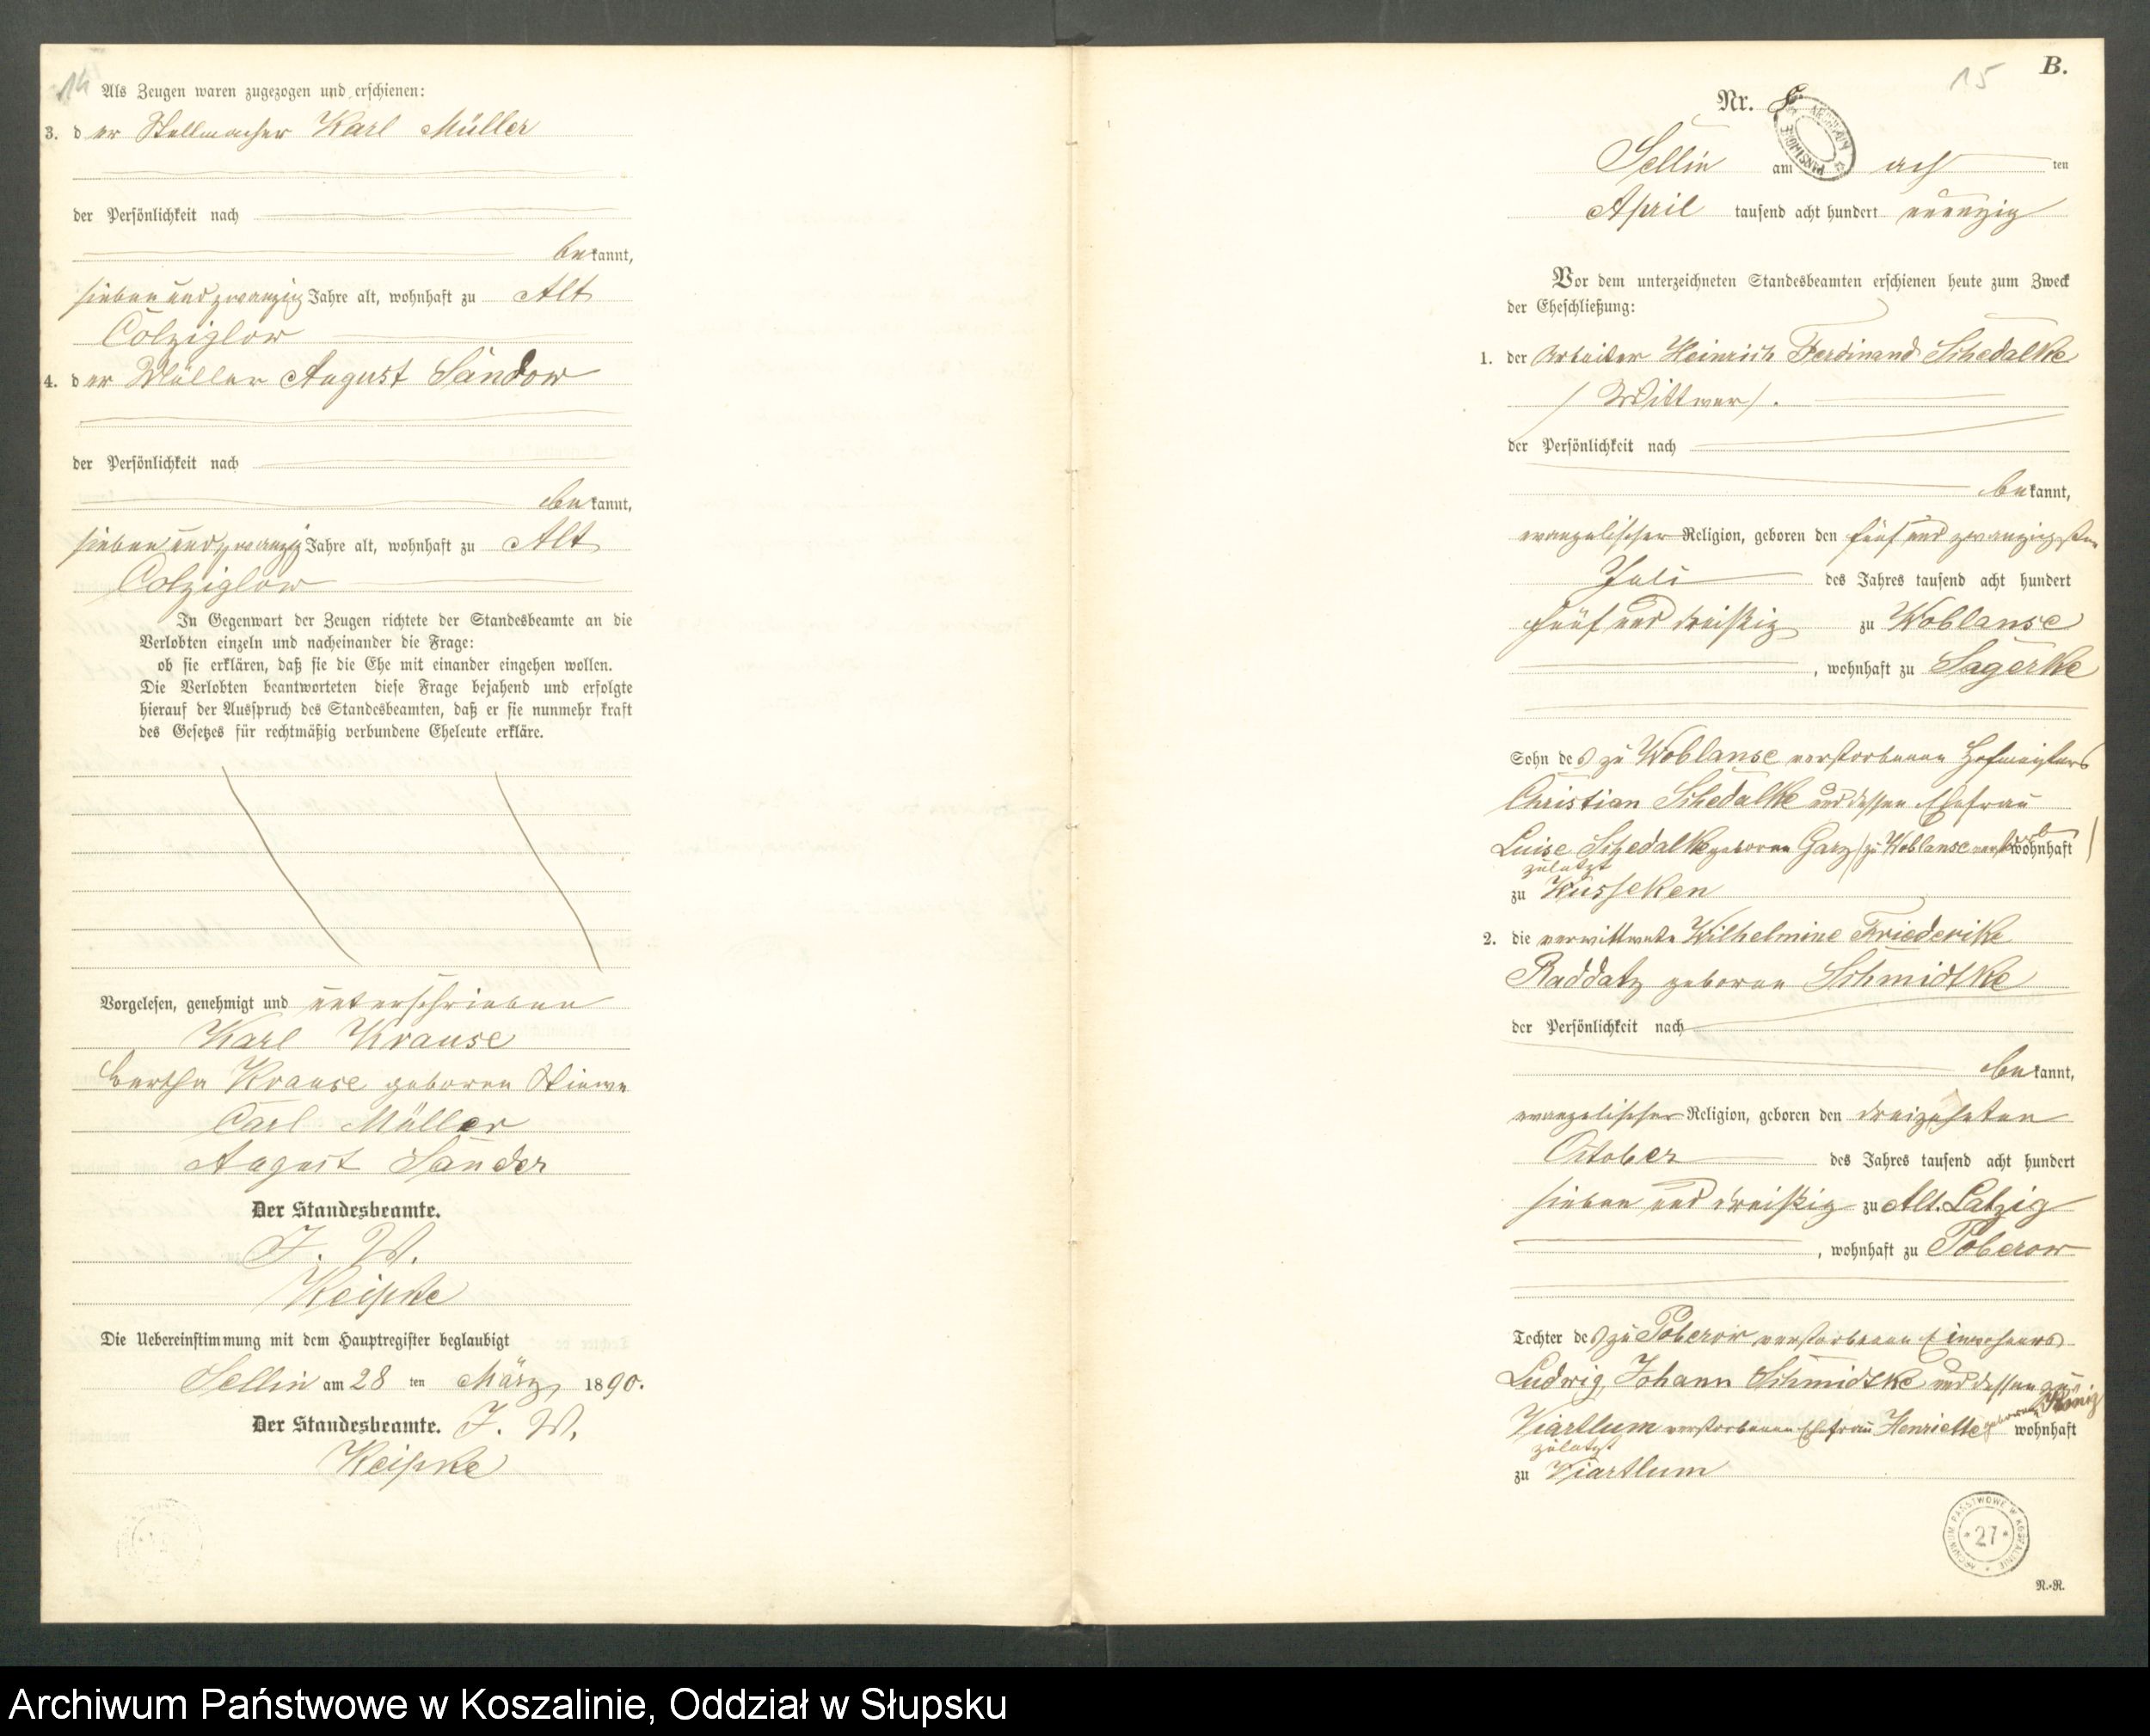 14
Als Zeugen waren zugezogen und erschienen:
3. der Stellmacher Karl Müller
der Persönlichkeit nach
bekannt,
sieben und zwanzig Jahre alt, wohnhaft zu Alt
Colziglow
4. der Müller August Sandow
der Persönlichkeit nach
bekannt,
sieben und zwanzig Jahre alt, wohnhaft zu Alt
Colziglow
In Gegenwart der Zeugen richtete der Standesbeamte an die
Verlobten einzeln und nacheinander die Frage:
ob sie erklären, daß sie die Ehe mit einander eingehen wollen.
Die Verlobten beantworteten diese Frage bejahend und erfolgte
hierauf der Ausspruch des Standesbeamten, daß er sie nunmehr kraft
des Gesetzes für rechtmäßig verbundene Eheleute erkläre.
Vorgelesen, genehmigt und unterschrieben
Karl Krause
Bertha Krause geboren
Carl Müller
August Sander
Der Standesbeamte.
J. W.
Die Uebereinstimmung mit dem Hauptregister beglaubigt
Sellin am 28 ten März 1890.
Der Standesbeamte. J. W.
15
B.
Nr.
Sellin am ach ten
April tausend acht hundert neunzig
Vor dem unterzeichneten Standesbeamten erschienen heute zum Zweck
der Eheschließung:
1. der Arbeiter Heinrich Ferdinand Schedalke
/ Wittwer /.
der Persönlichkeit nach
bekannt,
evangelischer Religion, geboren den fünf und zwanzigsten
Juli des Jahres tausend acht hundert
fünf und dreißig zu Woblanse
, wohnhaft zu Sagerke
Sohn des zu Woblanse verstorbenen Hofmeisters
Christian Schedalke und dessen Ehefrau
Luise Schedalke geboren Garz / zu Woblanse verstorb wohnhaft
zuletzt
zu Kusseken
2. die verwittwete Wilhelmine Friederike
Raddatz geboren Schmidtke
der Persönlichkeit nach
bekannt,
evangelischer Religion, geboren den dreizehnten
October des Jahres tausend acht hundert
sieben und dreißig zu Alt. Latzig
, wohnhaft zu Poberow
Tochter des zu Poberow verstorbenen Einwohners
Ludwig Johann Schmidtke und dessen zu
Viartlum verstorbenen Ehefrau Henriette geborenen wohnhaft
zuletzt
zu Viartlum
ARCHIWUM PAŃSTWOWE W KOSZALINIE
* 27 *
N.-R.
Archiwum Państwowe w Koszalinie, Oddział w Słupsku